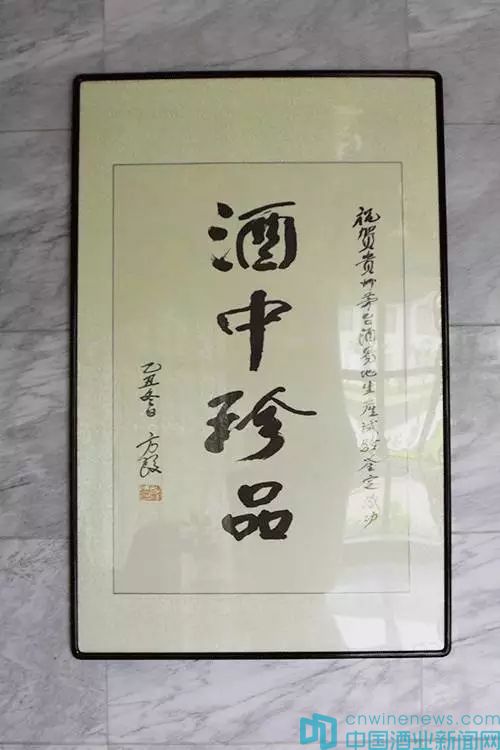 祝贺贵州茅台酒易地生产试验鉴定成功
酒中珍品
乙丑冬日 方毅
cnwinenews.com
中国酒业新闻网